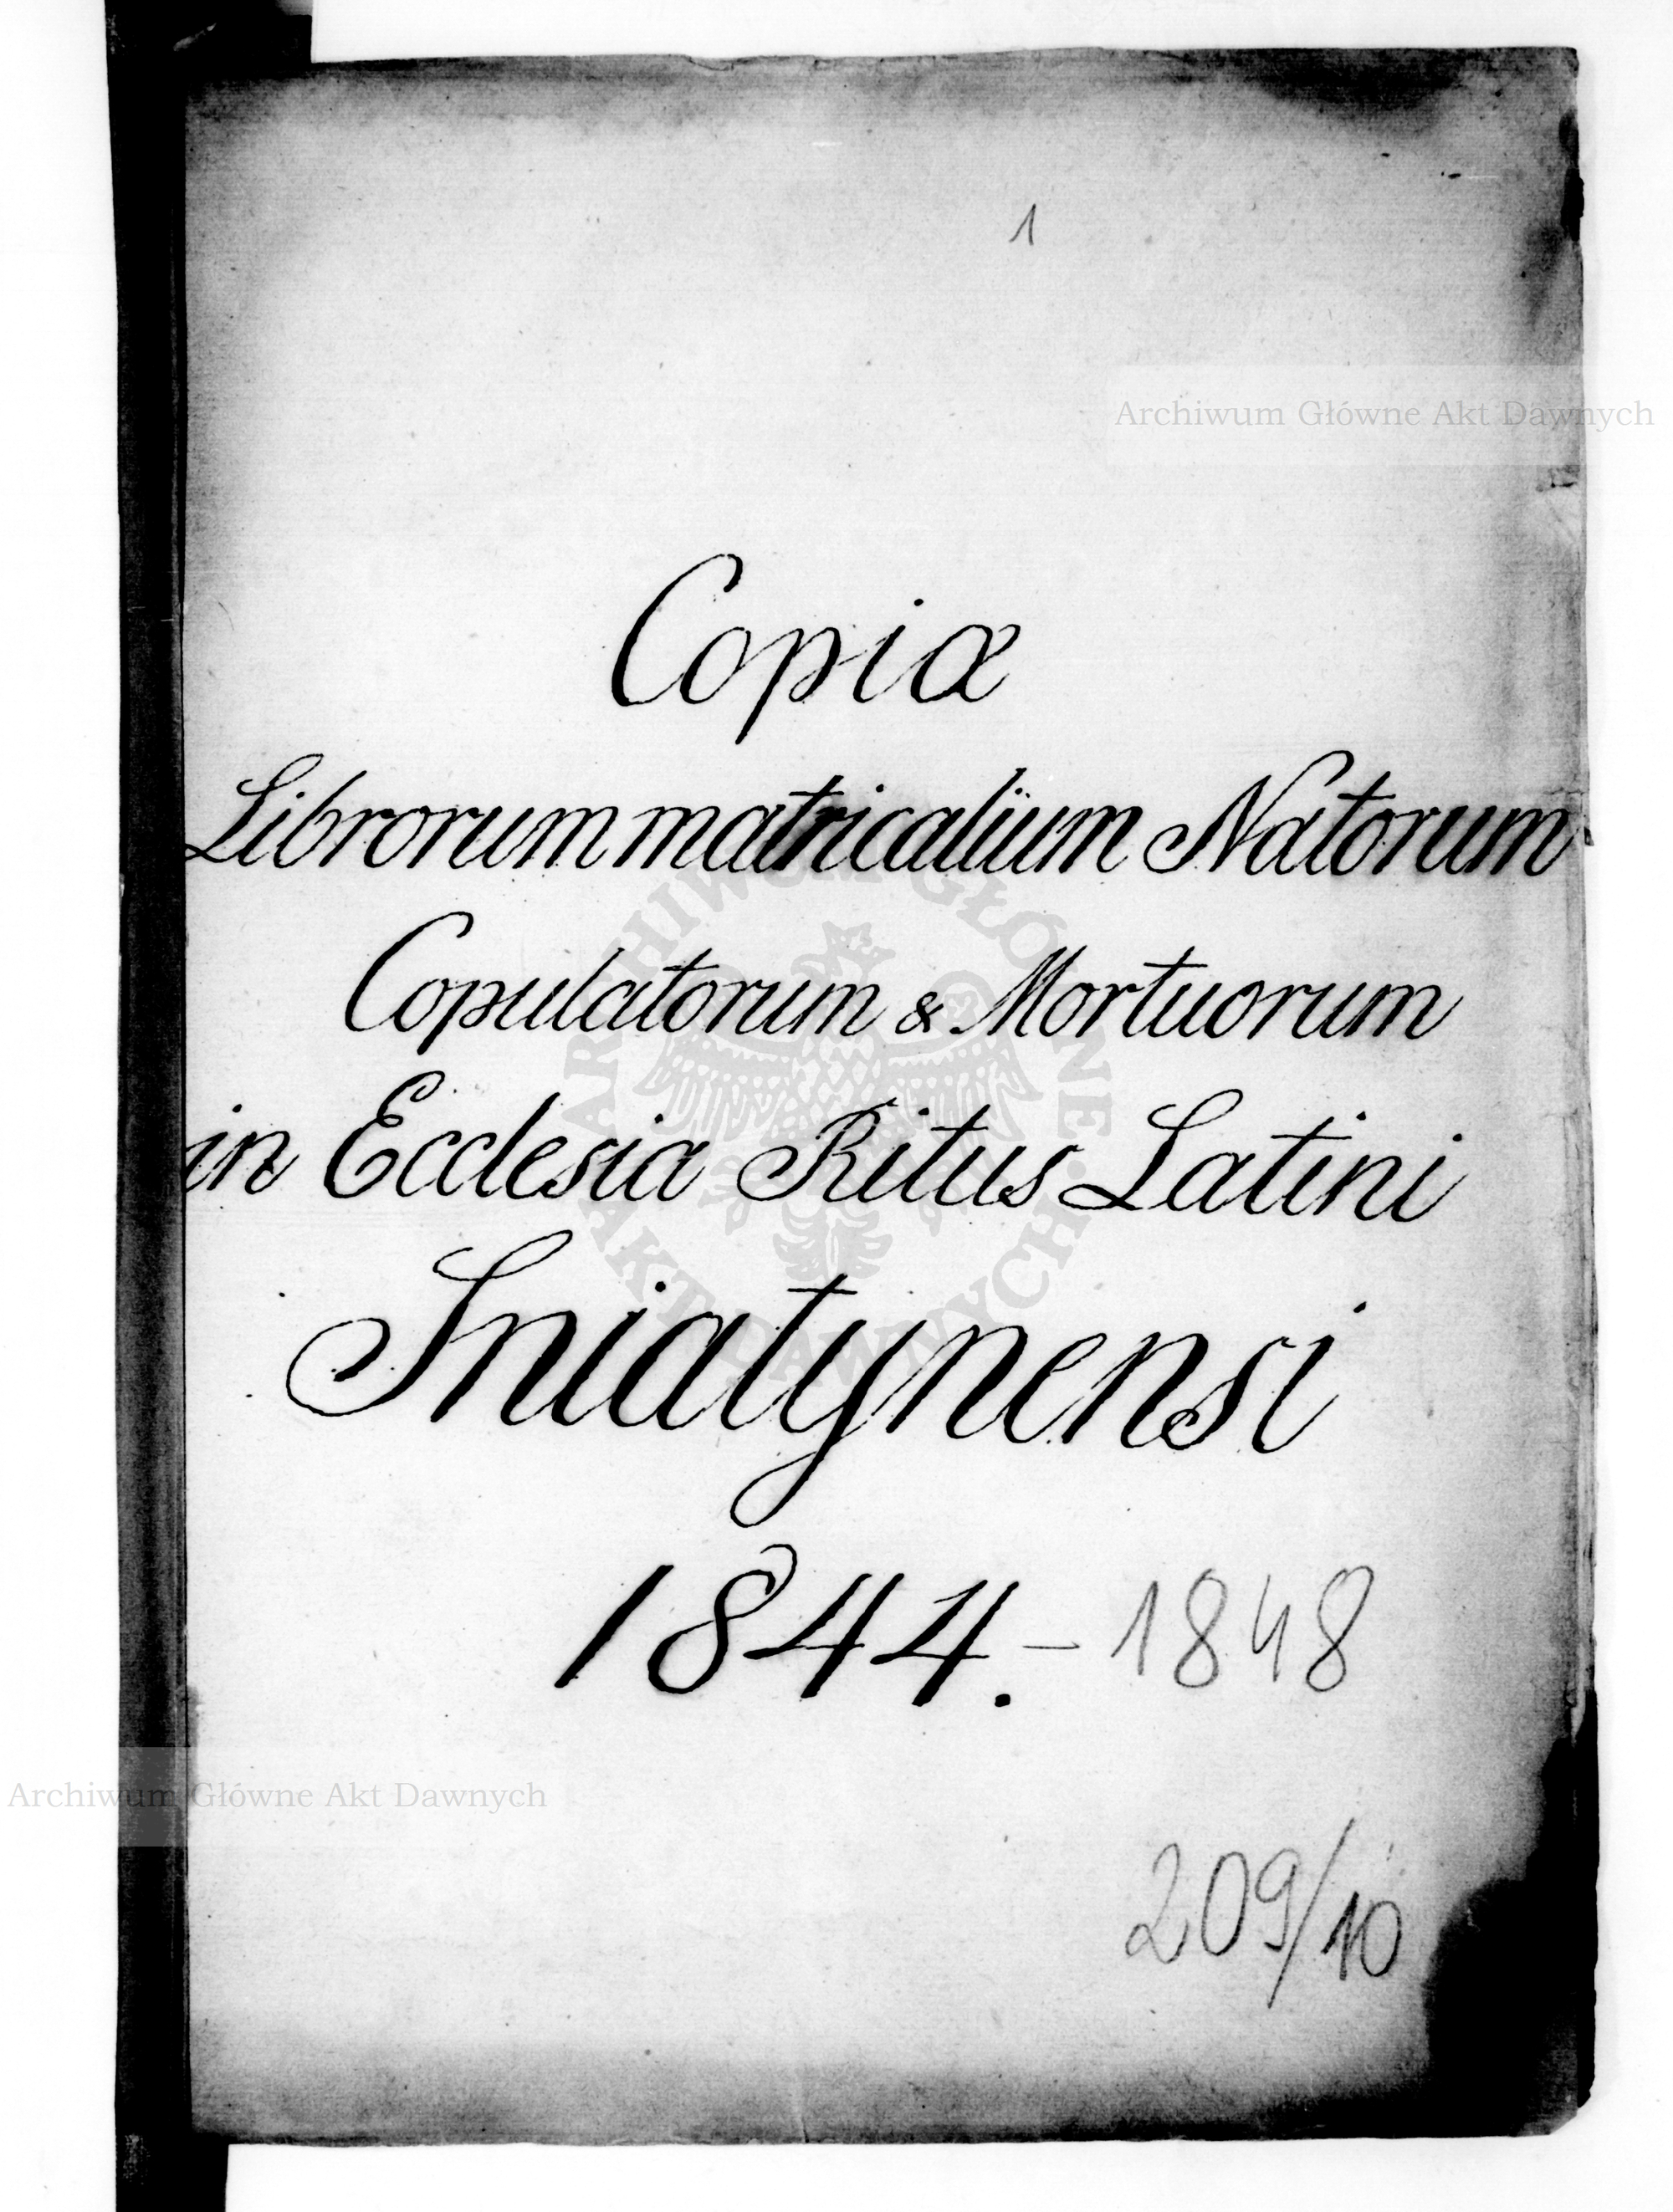 1
Archiwum Główne Akt Dawnych
Copiæ
Librorum matricalium Natorum
Copulatorum & Mortuorum
in Ecclesia Ritus Latini
Sniatynensi
1844. - 1848
Archiwum Główne Akt Dawnych
209/10
ARCHIWUM GŁÓWNE AKT DAWNYCH